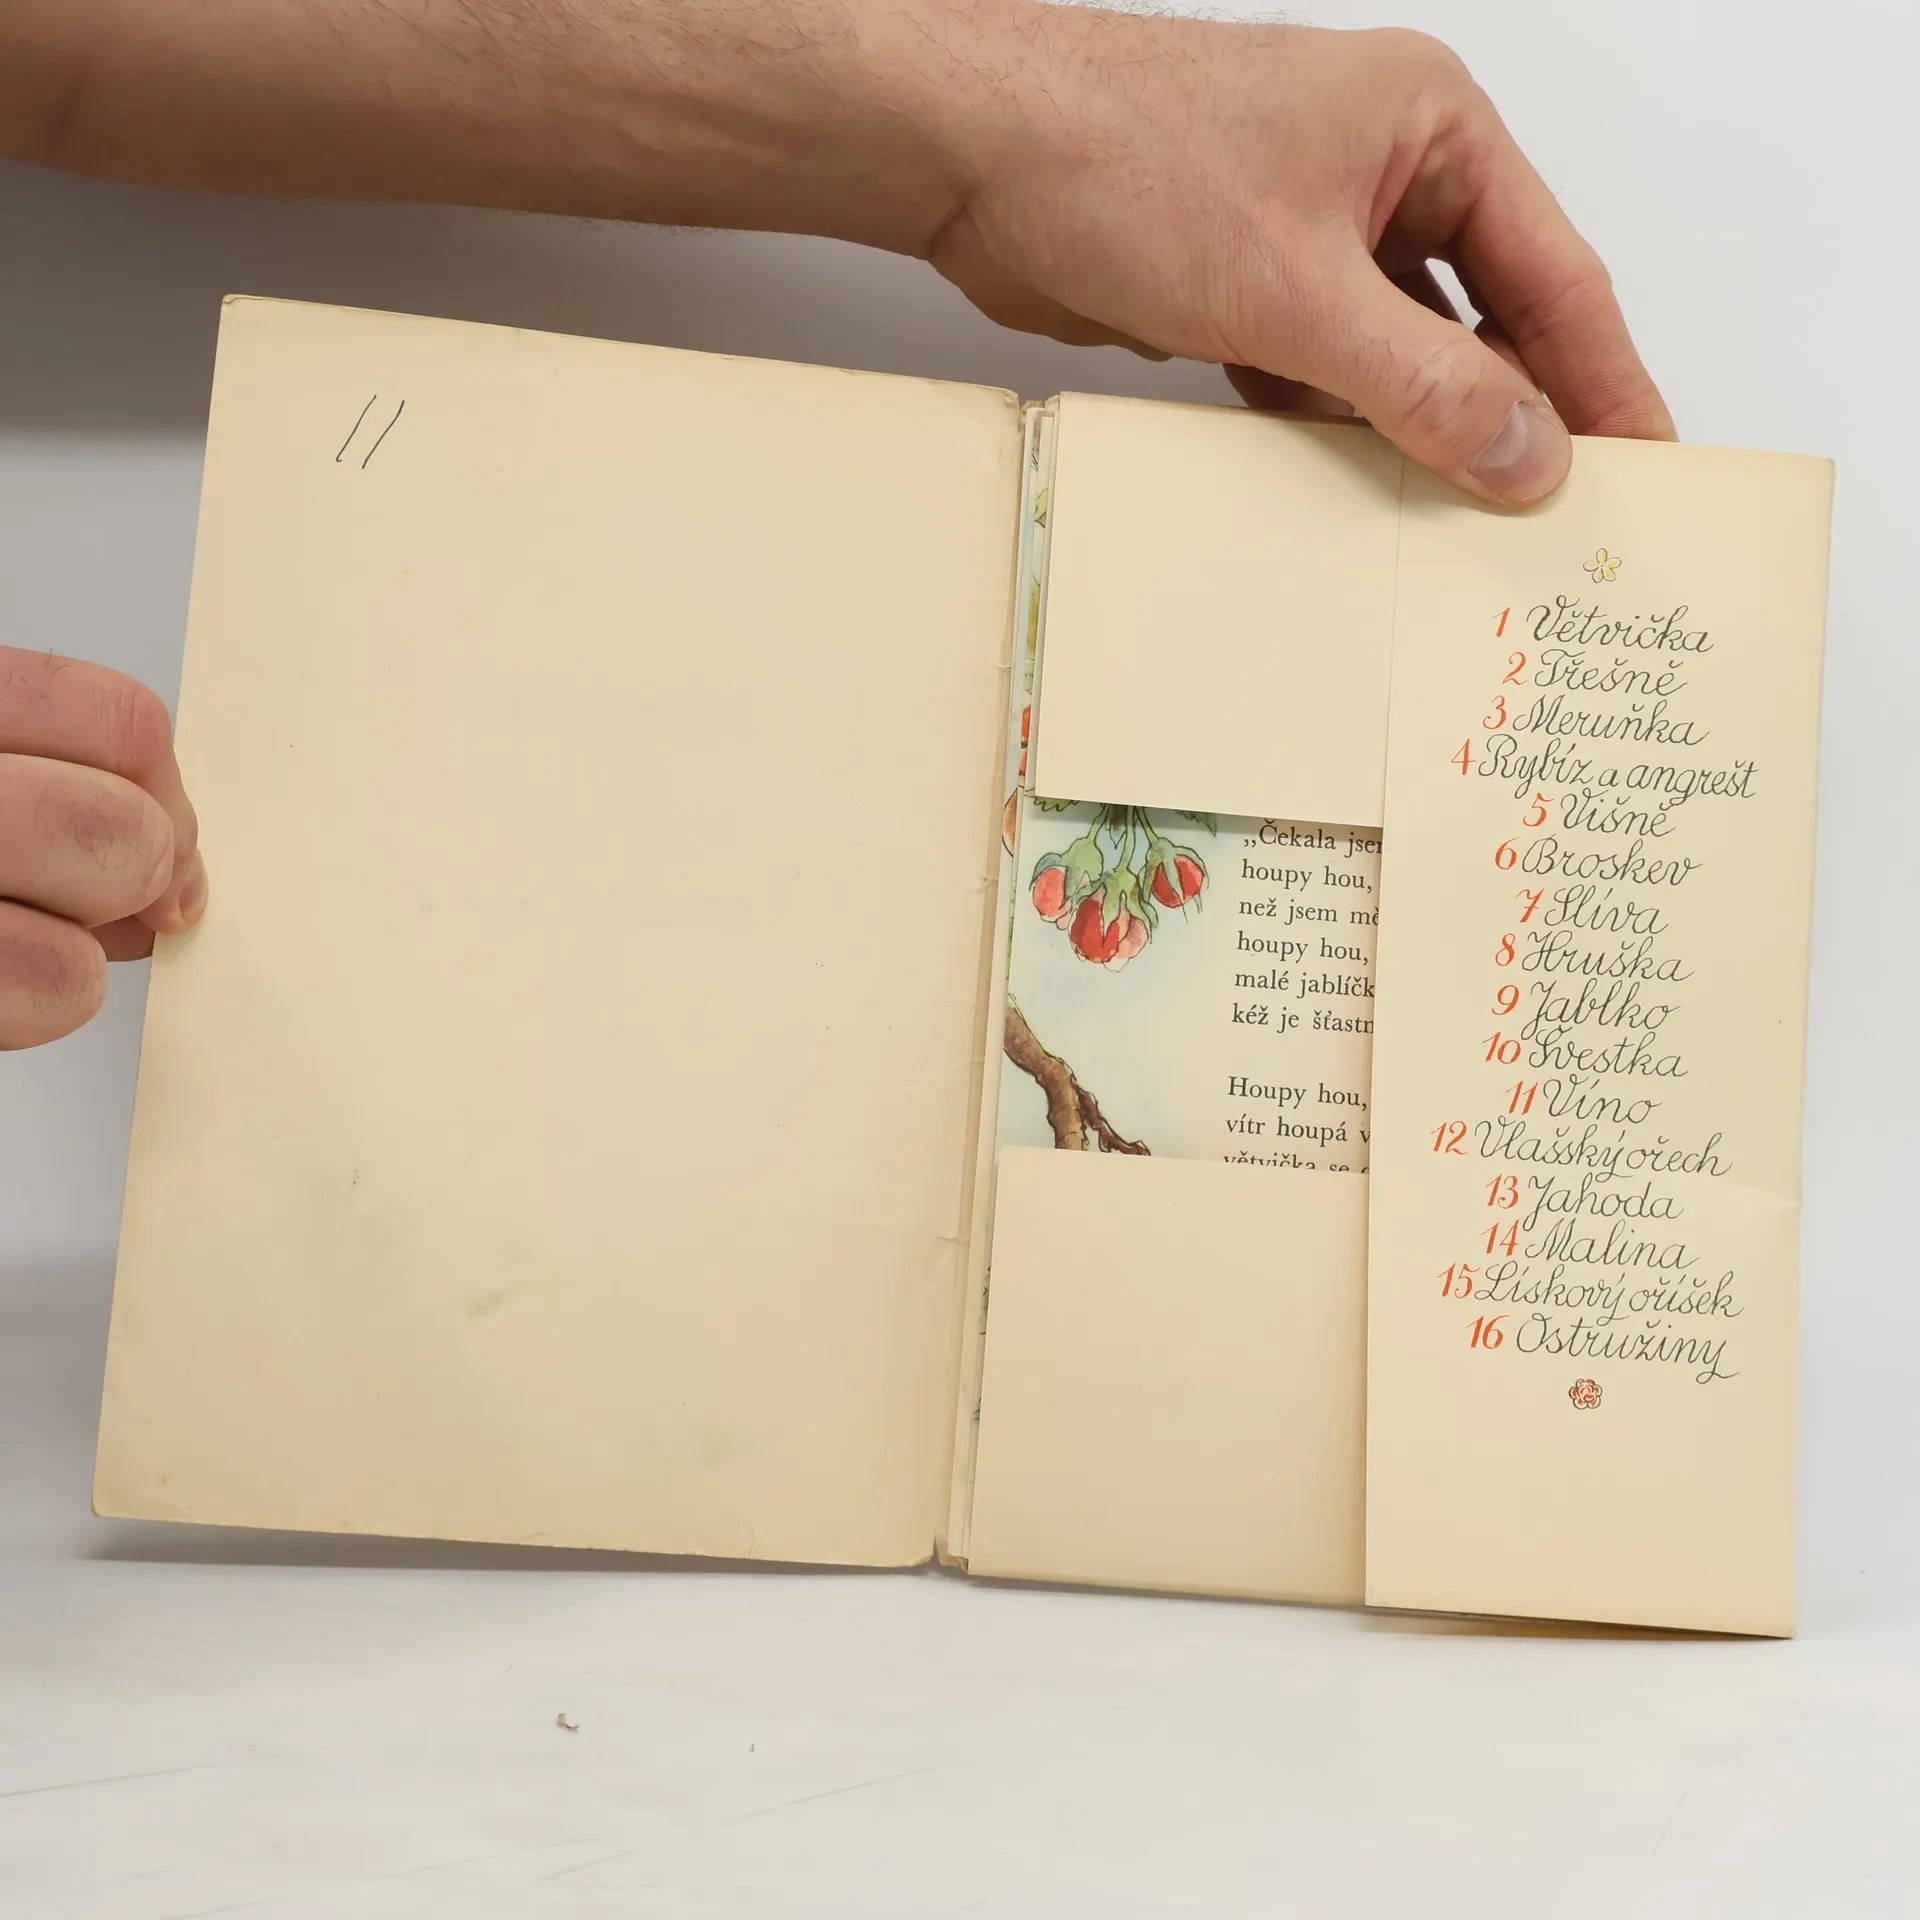 11
„Čekala jsem
houpy hou,
než jsem mě
houpy hou,
malé jablíčk
kéž je šťastn
Houpy hou,
vítr houpá v
větvička se
1 Větvička
2 Třešně
3 Meruňka
4 Rybíz a angrešt
5 Višně
6 Broskev
7 Slíva
8 Hruška
9 Jablko
10 Švestka
11 Víno
12 Vlašský ořech
13 Jahoda
14 Malina
15 Lískový oříšek
16 Ostružiny